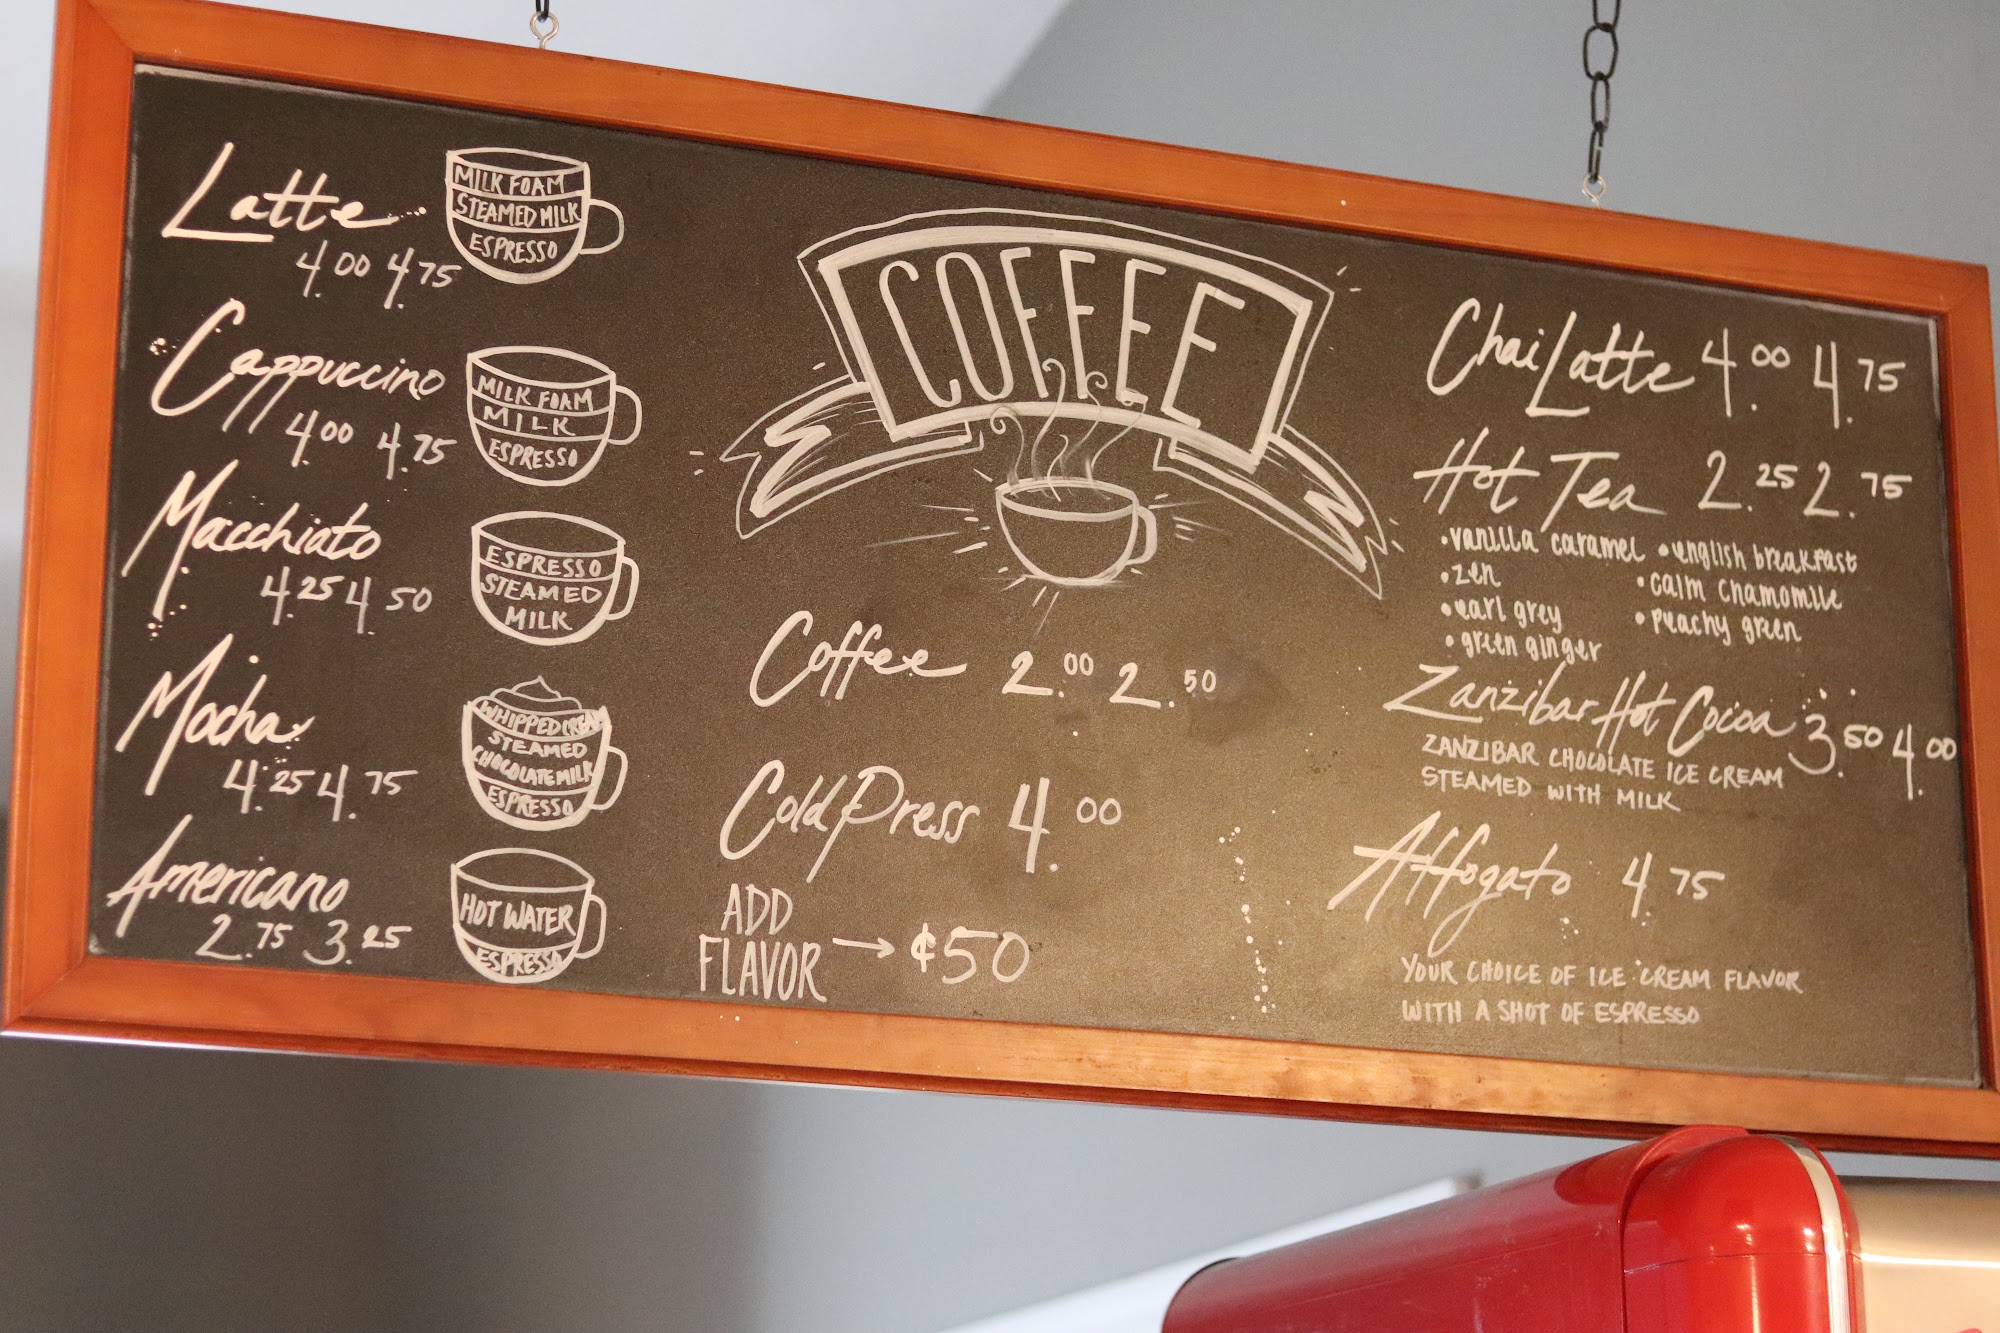 Latte
4.00 4.75
MILK FOAM
STEAMED MILK
ESPRESSO
Cappuccino
4.00 4.75
MILK FOAM
MILK
ESPRESSO
Macchiato
4.25 4.50
ESPRESSO
STEAMED
MILK
Mocha
4.25 4.75
WHIPPED CREAM
STEAMED
CHOCOLATE MILK
ESPRESSO
Americano
2.75 3.25
HOT WATER
ESPRESSO
COFFEE
Coffee 2.00 2.50
Cold Press 4.00
ADD
FLAVOR → ¢50
Chai Latte 4.00 4.75
Hot Tea 2.25 2.75
• vanilla caramel • english breakfast
• zen • calm chamomile
• earl grey • peachy green
• green ginger
Zanzibar Hot Cocoa 3.50 4.00
ZANZIBAR CHOCOLATE ICE CREAM
STEAMED WITH MILK
Affogato 4.75
YOUR CHOICE OF ICE CREAM FLAVOR
WITH A SHOT OF ESPRESSO